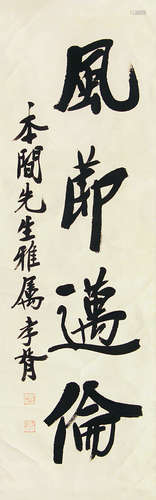 風節邁倫
本間先生雅屬李胥